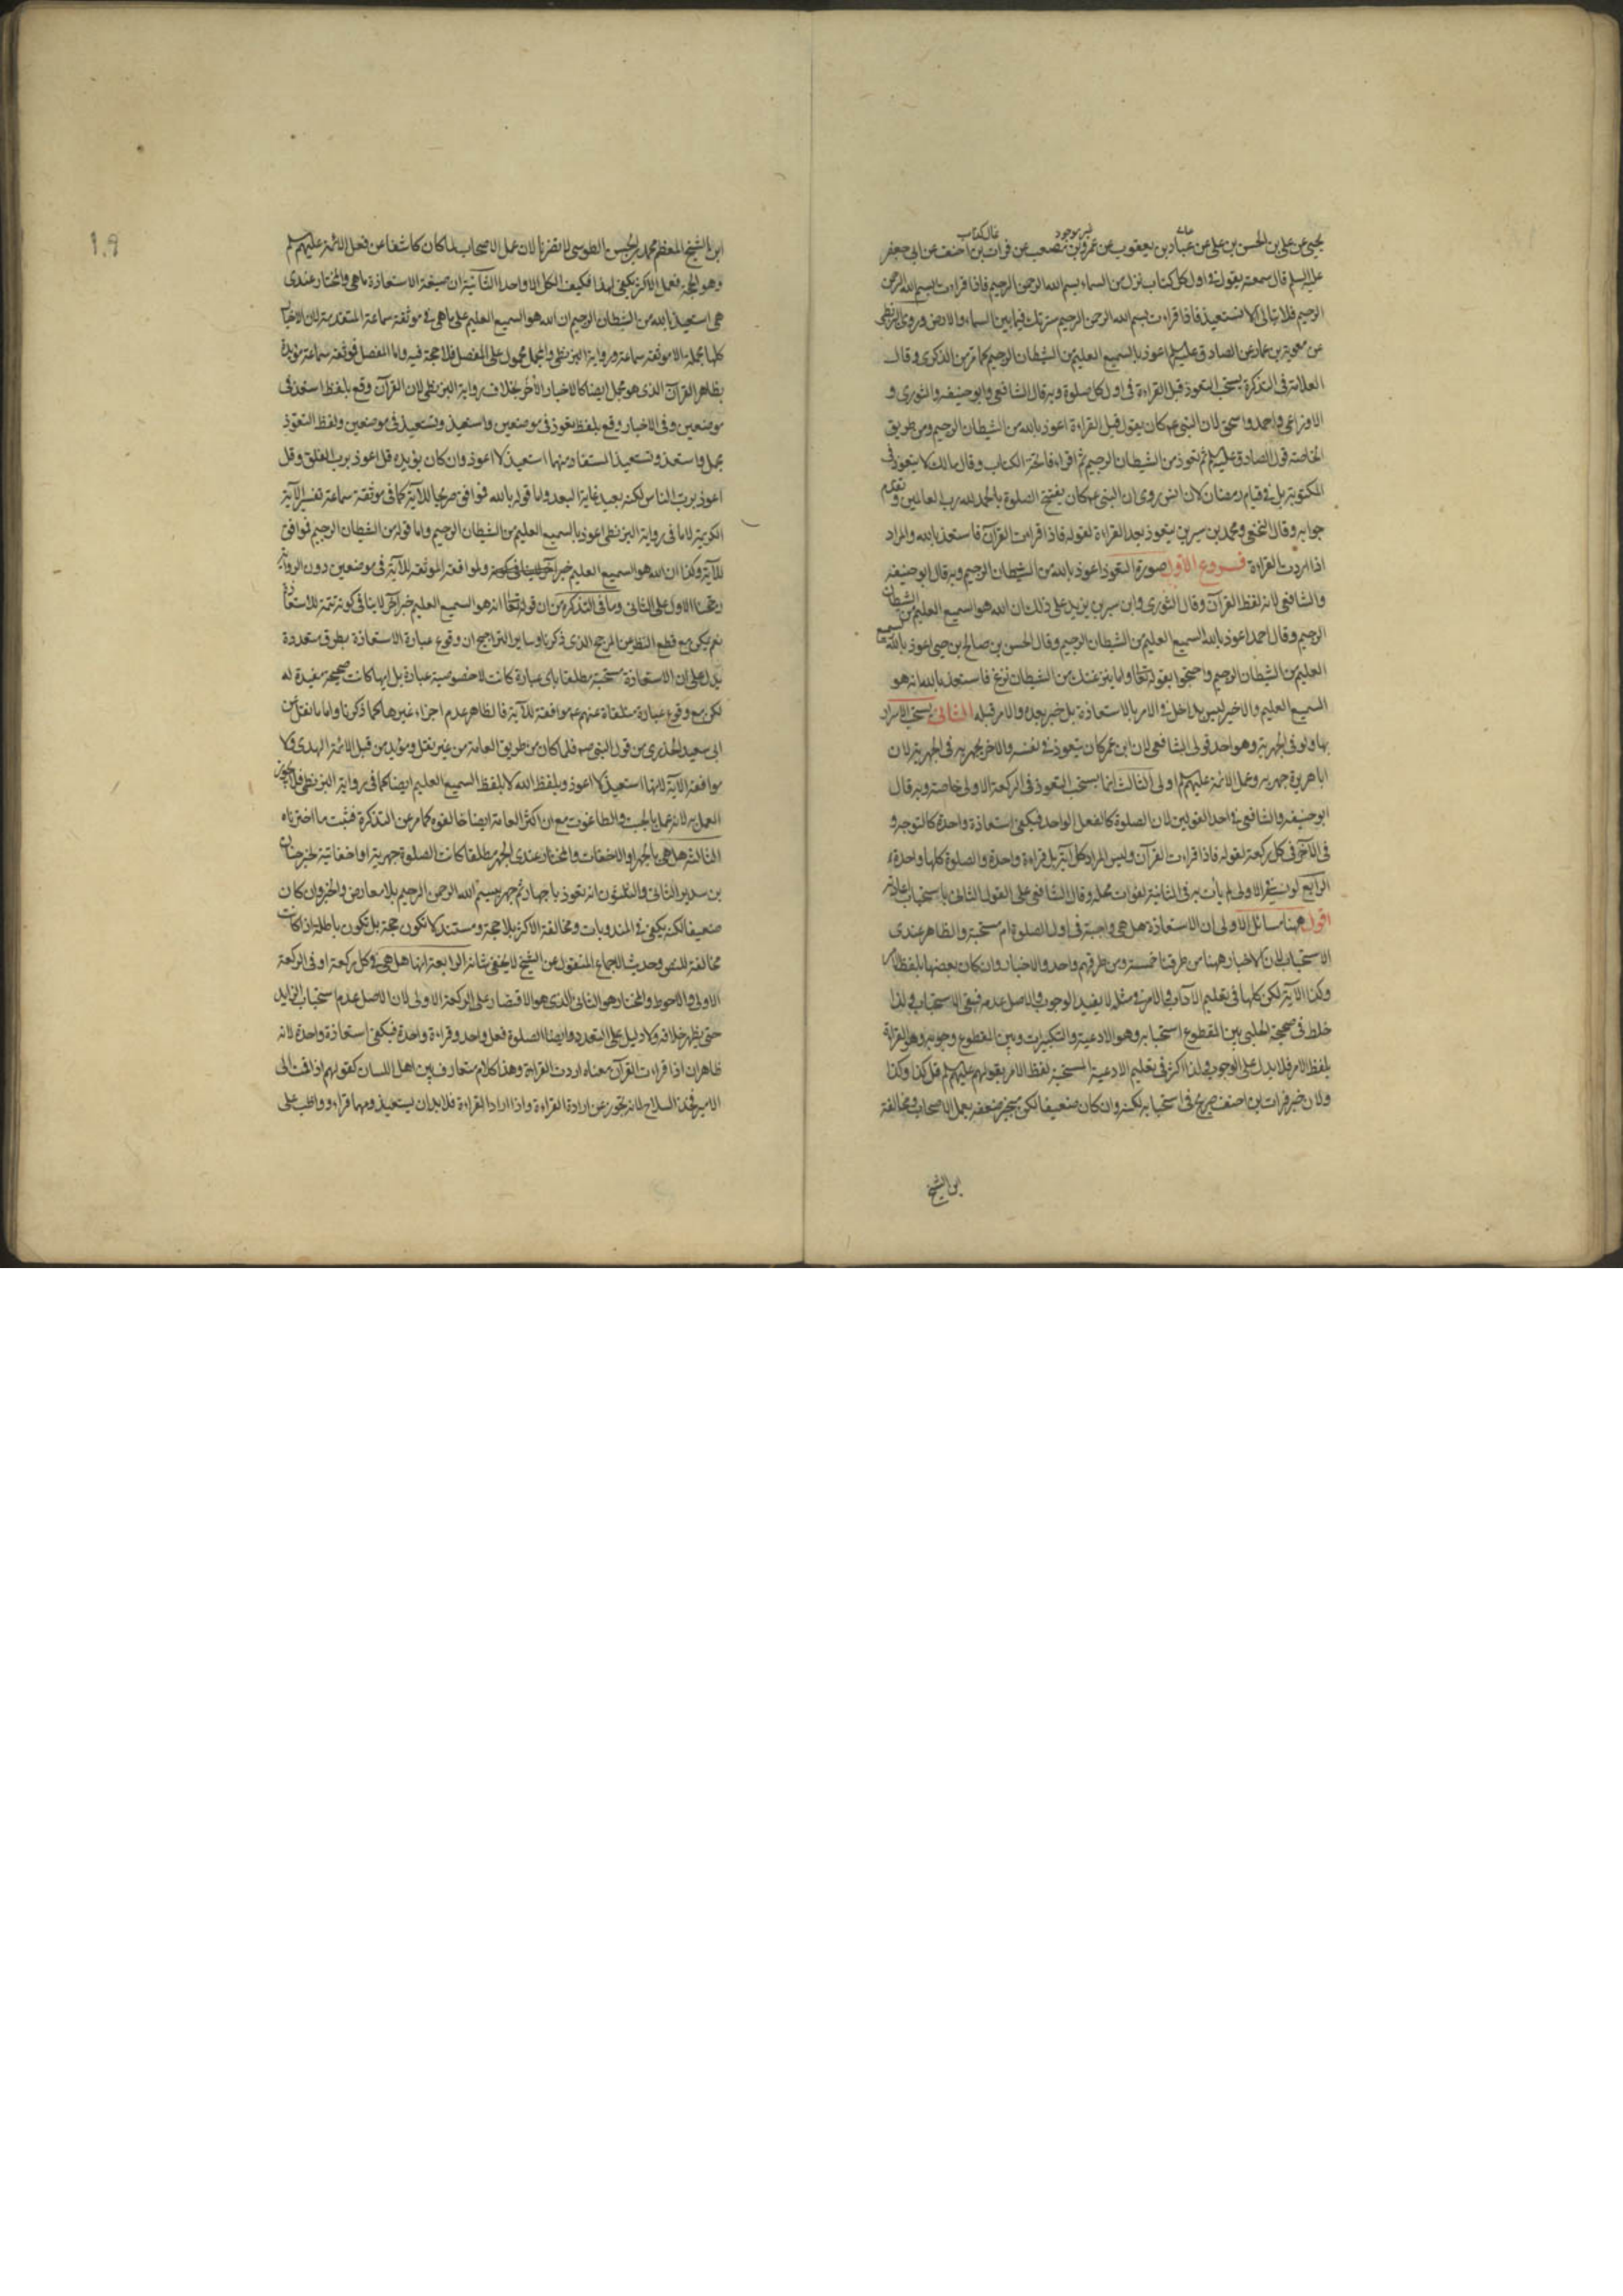 يحيى عن علي بن الحسن بن علي عن عباد بن يعقوب عن عمرو بن مصعب عن فرات بن احنف عن ابي جعفر
عليه السلم قال سمعته يقول في اول كل كتاب نزل من السماء بسم الله الرحمن الرحيم فاذا قراءت بسم الله الرحمن
الرحيم فلا تبالى الا تستعيذ فاذا قراءت بسم الله الرحمن الرحيم سترتك فيما بين السماء والارض وروى البزنطي
عن معوية بن عمار عن الصادق عليه السلم اعوذ بالسميع العليم من الشيطان الرجيم كما مر من الذكرى وقال
العلامة في التذكرة يستحب التعوذ قبل القراءة في اول كل صلوة وبه قال الشافعي وابو حنيفه والثورى و
الاوزاعي واحمد واسحق لان النبي ص كان يقول قبل القراءة اعوذ بالله من الشيطان الرجيم ومن طريق
الخاصة قول الصادق عليه السلم ثم تعوذ من الشيطان الرجيم ثم اقراء فاتحة الكتاب وقال مالك لا يتعوذ في
المكتوبة بل في قيام رمضان لان انس روى ان النبي ص كان يفتتح الصلوة بالحمد لله رب العالمين وتقدم
جوابه وقال النخعي ومحمد بن سيرين يتعوذ بعد القراءة لقوله فاذا قراءت القرآن فاستعذ بالله والمراد
اذا اردت القراءة فروع الاول صورة التعوذ اعوذ بالله من الشيطان الرجيم وبه قال ابو حنيفه
والشافعي لانه لفظ القرآن وقال الثورى وابن سيرين يزيد على ذلك ان الله هو السميع العليم من الشيطان
الرجيم وقال احمد اعوذ بالله السميع العليم من الشيطان الرجيم وقال الحسن بن صالح بن حيى اعوذ بالله السميع
العليم من الشيطان الرجيم واحتجوا بقوله تعالى واما ينزغنك من الشيطان نزغ فاستعذ بالله انه هو
السميع العليم والاخير ليس بداخل في الامر بالاستعاذة بل خبر بعده والامر قبله الثاني يستحب الاسرار
بها ولو في الجهرية وهو احد قولى الشافعي لان ابن عمر كان يتعوذ في نفسه والاخر يجهر به في الجهرية لان
ابا هريرة جهر به وعمل الائمة عليهم السلم اولى الثالث انما يستحب التعوذ في الركعة الاولى خاصة وبه قال
ابو حنيفه والشافعي في احد القولين لان الصلوة كالفعل الواحد فيكفى استعاذة واحدة كالتوجه و
في الآخر في كل ركعة لقوله فاذا قراءت القرآن وليس المراد كل آية بل قراءة واحدة والصلوة كلها واحدة
الرابع لو نسى في الاولى لم يأت به في الثانية لفوات محله وقال الشافعي على القول الثاني باستحباب اعادته
اقول ههنا مسائل الاولى ان الاستعاذة هل هي واجبة في اول الصلوة ام مستحبة والظاهر عندى
الاستحباب لان الاخبار ههنا من طرقنا خمسة ومن طرقهم واحد والاخبار وان كان بعضها بلفظ الامر
وكذا الآية لكن كلها في تعليم الآداب والامر في مثله لا يفيد الوجوب والاصل عدمه فبقى الاستحباب ولذا
خلط في صحيحة الحلبي بين المقطوع استحبابه وهو الادعية والتكبيرات وبين المقطوع وجوبه وهو القراءة
بلفظ الامر فلا يدل على الوجوب ولذا اكثر في تعليم الادعية المستحبة لفظ الامر بقولهم عليهم السلم قل كذا وكذا
ولان خبر فرات بن احنف صريح في استحبابه لكنه وان كان ضعيفا لكن ينجبر ضعفه بعمل الاصحاب ومخالفة
ابن الشيخ
ابن الشيخ المعظم محمد بن الحسن الطوسي لا تضرنا لان عمل الاصحاب لما كان كاشفا عن فعل الائمة عليهم السلم
وهو الحجة ففعل الاكثر يكفى لهذا فكيف الكل الا واحدا الثانية ان صيغة الاستعاذة ما هي والمختار عندى
هي استعيذ بالله من الشيطان الرجيم ان الله هو السميع العليم على ما هي في موثقة سماعة المتقدمة لان الاخبار
كلها مجملة الا موثقة سماعة ورواية البزنطي والمجمل محمول على المفصل فلا حجة فيه واما المفصل فموثقة سماعة مؤيدة
بظاهر القرآن الذى هو مجمل ايضا كالاخبار الأخر بخلاف رواية البزنطي لان القرآن وقع بلفظ استعذ في
موضعين وفي الاخبار وقع بلفظ تعوذ في موضعين واستعيذ وتستعيذ في موضعين ولفظ التعوذ
مجمل واستعذ وتستعيذ المستفاد منهما استعيذ لا اعوذ وان كان يؤيده قل اعوذ برب الفلق وقل
اعوذ برب الناس لكنه بعيد غاية البعد واما قوله بالله فوافق صريحا للآية كما في موثقة سماعة تفسير الآية
الكريمة لا ما في رواية البزنطي اعوذ بالسميع العليم من الشيطان الرجيم واما قوله من الشيطان الرجيم فوافق
للآية وكذا ان الله هو السميع العليم خبر آخر ولموافقة الموثقة للآية في موضعين دون الرواية
رجحنا الاول على الثاني وما في التذكرة من ان قوله تعالى انه هو السميع العليم خبر آخر لا ينافى كونه تتمة للاستعاذة
نعم يمكن مع قطع النظر عن المرجح الذى ذكرنا وساير التراجيح ان وقوع عبارة الاستعاذة بطرق متعددة
يدل على ان الاستعاذة مستحبة مطلقا باى عبارة كانت لا خصوصية عبارة بل ايها كانت صحيحة مفيدة له
لكن مع وقوع عبارة متلقاة عنهم ع موافقة للآية فالظاهر عدم اجزاء غيرها كما ذكرنا واما ما نقل عن
ابي سعيد الخدرى من قول النبي ص فلما كان من طريق العامة من غير نقل ومؤيد من قبل الائمة الهدى ولا
موافقة الآية لانها استعيذ لا اعوذ وبلفظ الله لا بلفظ السميع العليم ايضا كما في رواية البزنطي فلا يجوز
العمل به لانه عمل بالجبت والطاغوت مع ان اكثر العامة ايضا خالفوه كما مر عن التذكرة فثبت ما اخترناه
الثالثة هل هي بالجهر او الاخفات والمختار عندى الجهر مطلقا كانت الصلوة جهرية او اخفاتية لخبر حنان
بن سدير الثاني والثلثون انه تعوذ باجهار ثم جهر ببسم الله الرحمن الرحيم بلا معارض والخبر وان كان
ضعيفا لكنه يكفى في المندوبات ومخالفة الاكثر بلا حجة ومستند لا تكون حجة بل تكون باطلة اذا كانت
مخالفة للنص وحديث الاجماع المنقول عن الشيخ لا يخفى شأنه الرابعة انها هل هي في كل ركعة او في الركعة
الاولى والاحوط والمختار هو الثاني الذى هو الاقتصار على الركعة الاولى لان الاصل عدم استحباب الزايد
حتى يظهر خلافه ولا دليل على التعدد وايضا الصلوة فعل واحد وقراءة واحدة فيكفى استعاذة واحدة لانه
ظاهر ان اذا قراءت القرآن معناه اردت القراءة وهذا كلام متعارف بين اهل اللسان كقولهم اذا لقت الى
الامير فخذ السلاح لانه تجوز عن ارادة القراءة واذا اراد القراءة فلابد ان يستعيذ ومهما قراء وواظب على